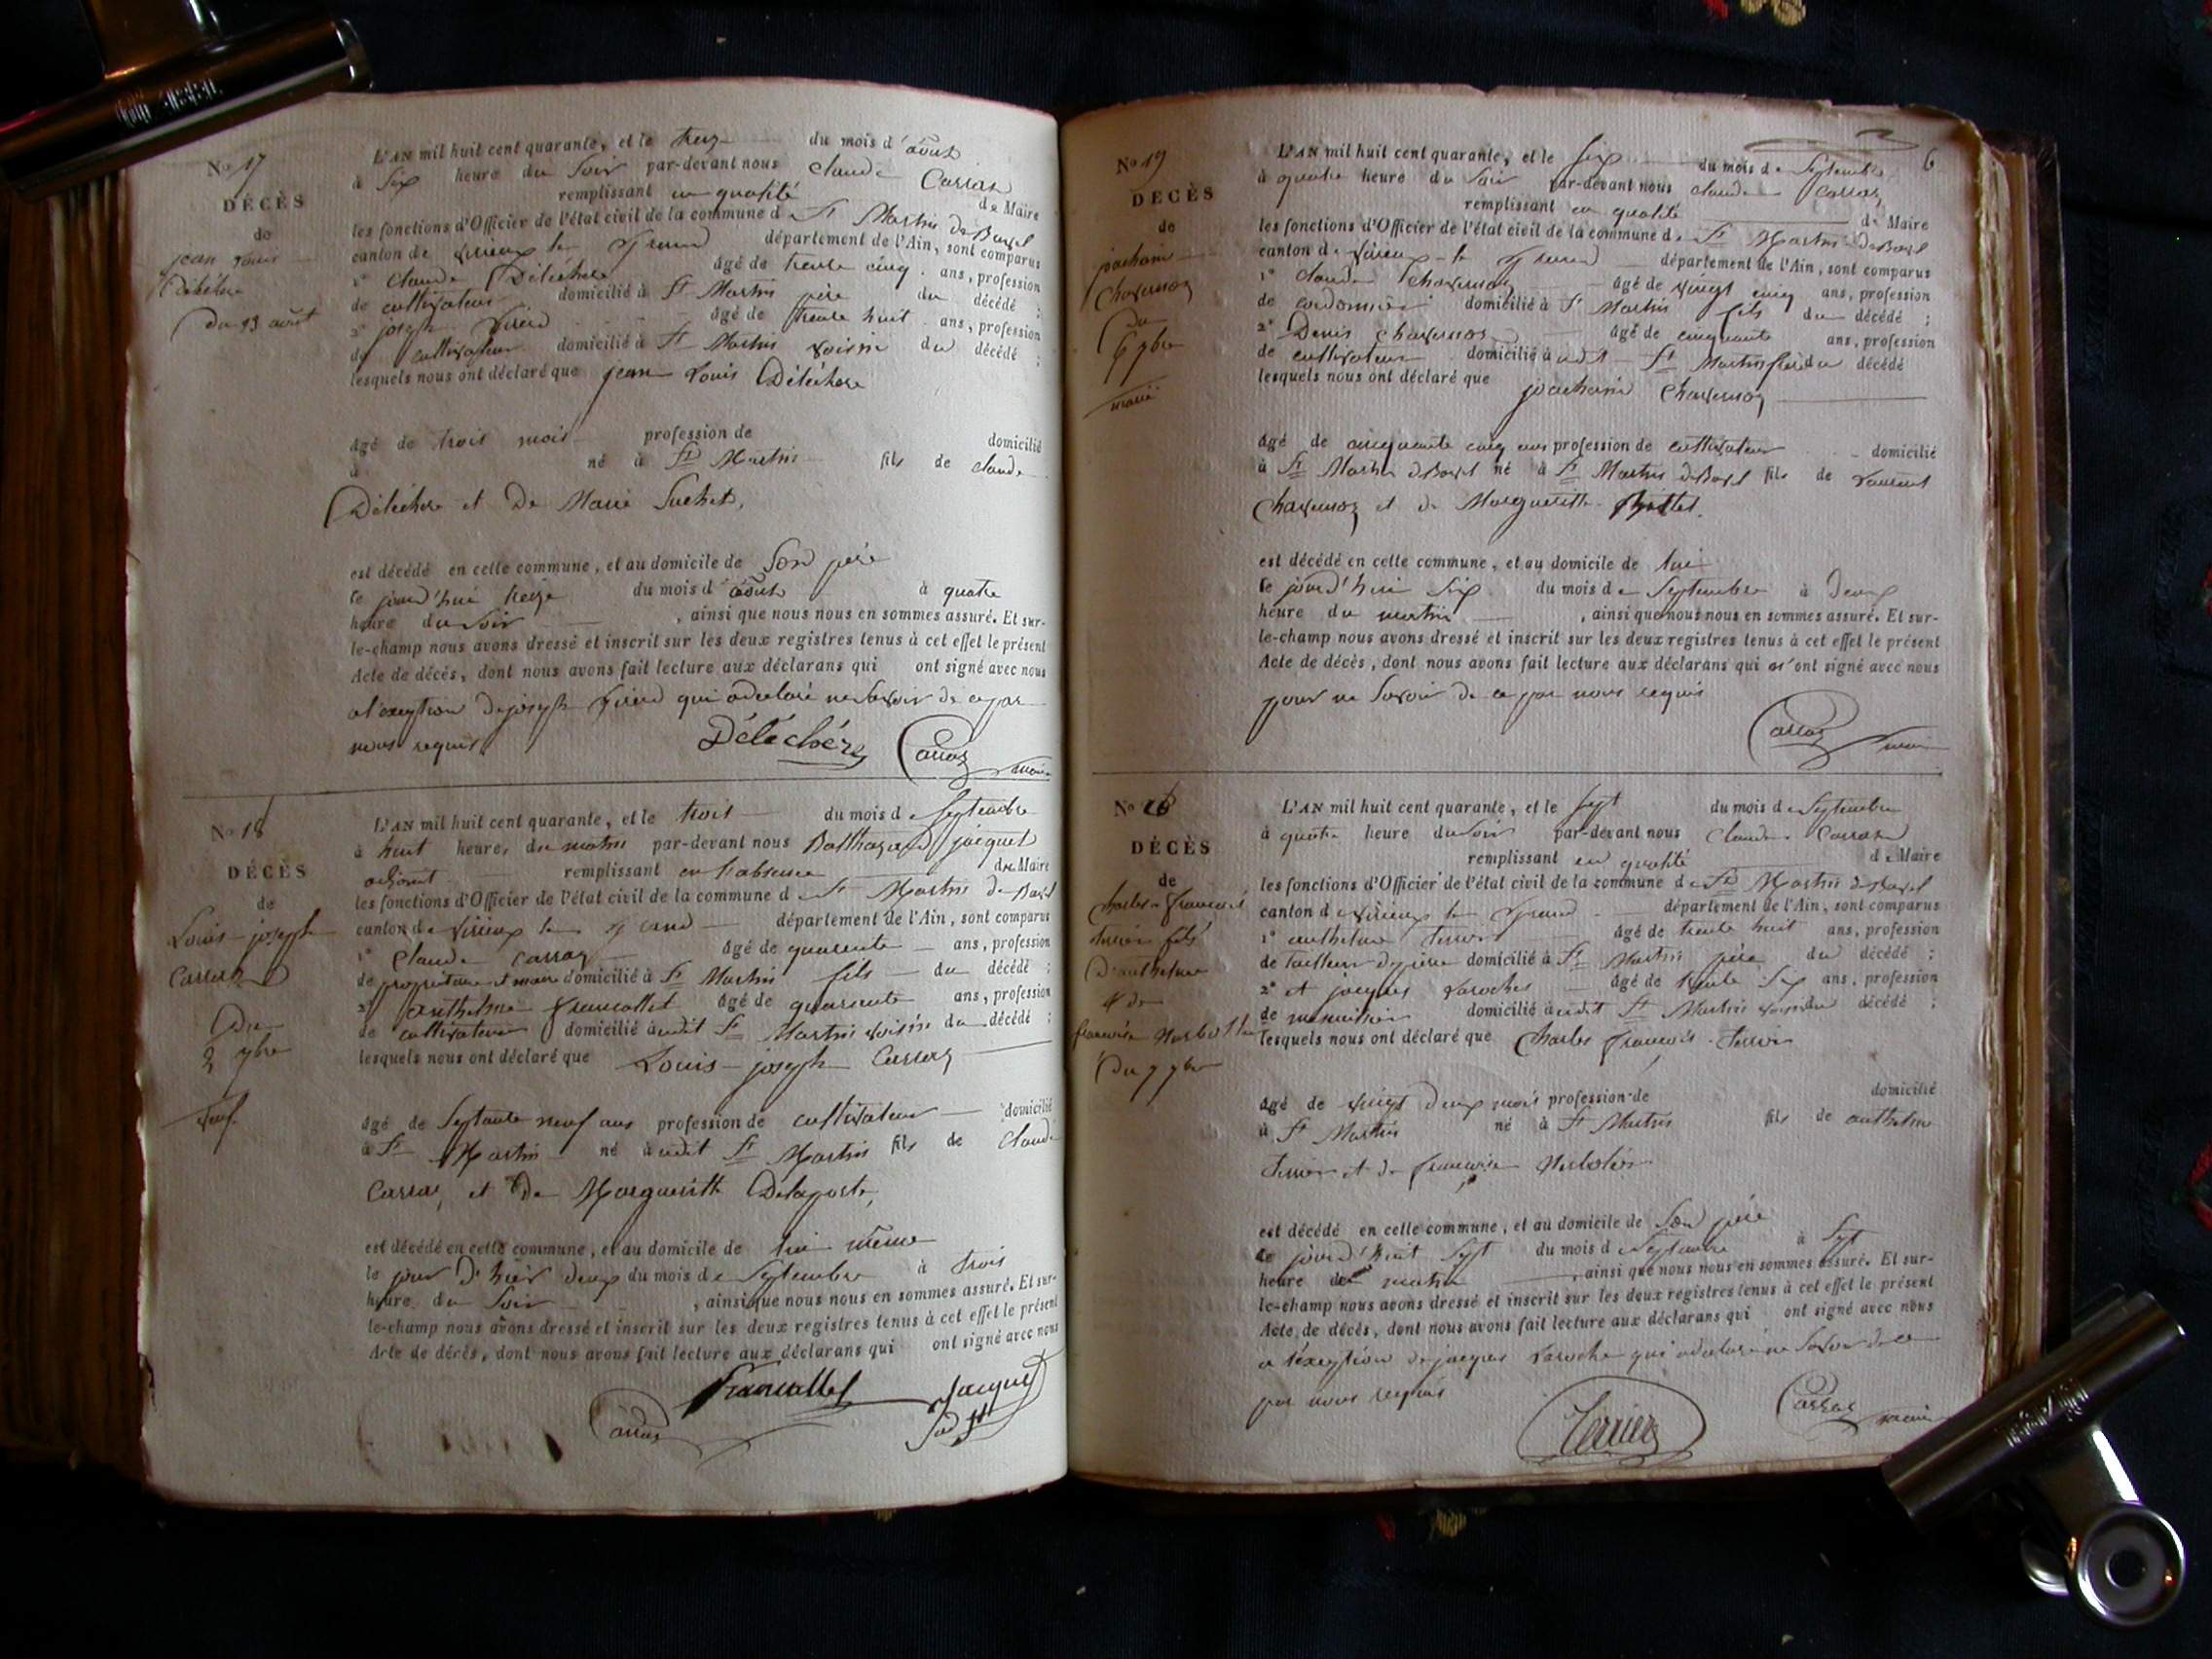 No 17
DÉCÈS
de
jean Louis
Déléchere
du 13 août
L'AN mil huit cent quarante, et le treize du mois d'août
à Six heure du Soir par-devant nous Claude Carraz
remplissant en qualité de Maire
les fonctions d'Officier de l'état civil de la commune de St Martin de Bavel
canton de Virieux le Grand département de l'Ain, sont comparus
1° Claude Déléchere âgé de trente cinq ans, profession
de cultivateur domicilié à St Martin père du décédé ;
2° joseph âgé de trente huit ans, profession
de cultivateur domicilié à St Martin voisin du décédé ;
lesquels nous ont déclaré que jean Louis Déléchere
âgé de trois mois profession de domicilié
à né à St Martin fils de Claude
Déléchere et De Marie Suchet,
est décédé en cette commune, et au domicile de Son père
le jourd'hui treize du mois d'août à quatre
heure du Soir , ainsi que nous nous en sommes assuré. Et sur-
le-champ nous avons dressé et inscrit sur les deux registres tenus à cet effet le présent
Acte de décès, dont nous avons fait lecture aux déclarans qui ont signé avec nous
a l'exeption de joseph qui a déclaré ne Savoir de ce par
nous requis
Déléchère Carraz maire
No 18
DÉCÈS
de
Louis joseph
Carraz
Du
3 7bre
veuf
L'AN mil huit cent quarante, et le trois du mois de Septembre
à huit heure, du matin par-devant nous Balthazard jacquet
adjoint remplissant en l'absence du Maire
les fonctions d'Officier de l'état civil de la commune de St Martin de Bavel
canton de Virieux le Grand département de l'Ain, sont comparus
1° Claude Carraz âgé de quarente ans, profession
de propriétaire et maire domicilié à St Martin fils du décédé ;
2° anthelme Francollet âgé de quarente ans, profession
de cultivateur domicilié audit St Martin voisin du décédé ;
lesquels nous ont déclaré que Louis joseph Carraz
âgé de Septante neuf ans profession de cultivateur domicilié
à St Martin né audit St Martin fils de Claude
Carraz, et De Margueritte Delaporte,
est décédé en cette commune, et au domicile de lui même
le jour d'hier deux du mois de Septembre à trois
heure du Soir , ainsi que nous nous en sommes assuré. Et sur-
le-champ nous avons dressé et inscrit sur les deux registres tenus à cet effet le présent
Acte de décès, dont nous avons fait lecture aux déclarans qui ont signé avec nous
Francollet Jacquet
Carraz adjt
6
No 19
DÉCÈS
de
joachain
Charvenoz
Du
6 7bre
marié
L'AN mil huit cent quarante, et le Six du mois de Septembre
à quatre heure du Soir par-devant nous Claude Carraz
remplissant en qualité de Maire
les fonctions d'Officier de l'état civil de la commune de St Martin de Bavel
canton de Virieux le Grand département de l'Ain, sont comparus
1° Claude Charvenoz âgé de vingt cinq ans, profession
de cordonnier domicilié à St Martin fils du décédé ;
2° Denis Charvenoz âgé de cinquante ans, profession
de cultivateur domicilié audit St Martin frère du décédé
lesquels nous ont déclaré que joachain Charvenoz
âgé de cinquante cinq ans profession de cultivateur domicilié
à St Martin de Bavel né à St Martin de Bavel fils de Laurent
Charvenoz et de Margueritte
est décédé en cette commune, et au domicile de lui
le jourd'hui Six du mois de Septembre à Deux
heure du matin , ainsi que nous nous en sommes assuré. Et sur-
le-champ nous avons dressé et inscrit sur les deux registres tenus à cet effet le présent
Acte de décès, dont nous avons fait lecture aux déclarans qui n'ont signé avec nous
pour ne Savoir de ce par nous requis
Carraz maire
No
DÉCÈS
de
charles François
terrier fils
D'anthelme
& de
françoise
Du 7 7bre
L'AN mil huit cent quarante, et le Sept du mois de Septembre
à quatre heure du Soir par-devant nous Claude Carraz
remplissant en qualité de Maire
les fonctions d'Officier de l'état civil de la commune de St Martin de Bavel
canton de Virieux le Grand département de l'Ain, sont comparus
1° anthelme terrier âgé de trente huit ans, profession
de tailleur de pierre domicilié à St Martin père du décédé ;
2° et jacques Laroche âgé de trente Six ans, profession
de menuisier domicilié audit St Martin voisin du décédé ;
lesquels nous ont déclaré que Charles François terrier
âgé de vingt deux mois profession de domicilié
à St Martin né à St Martin fils de anthelme
terrier et de françoise
est décédé en cette commune, et au domicile de Son père
le jourd'huit Sept du mois de Septembre à Sept
heure du matin , ainsi que nous nous en sommes assuré. Et sur-
le-champ nous avons dressé et inscrit sur les deux registres tenus à cet effet le présent
Acte de décès, dont nous avons fait lecture aux déclarans qui ont signé avec nous
a l'exeption de jacques Laroche qui a déclaré ne Savoir de ce
par nous requis
Terrier Carraz maire